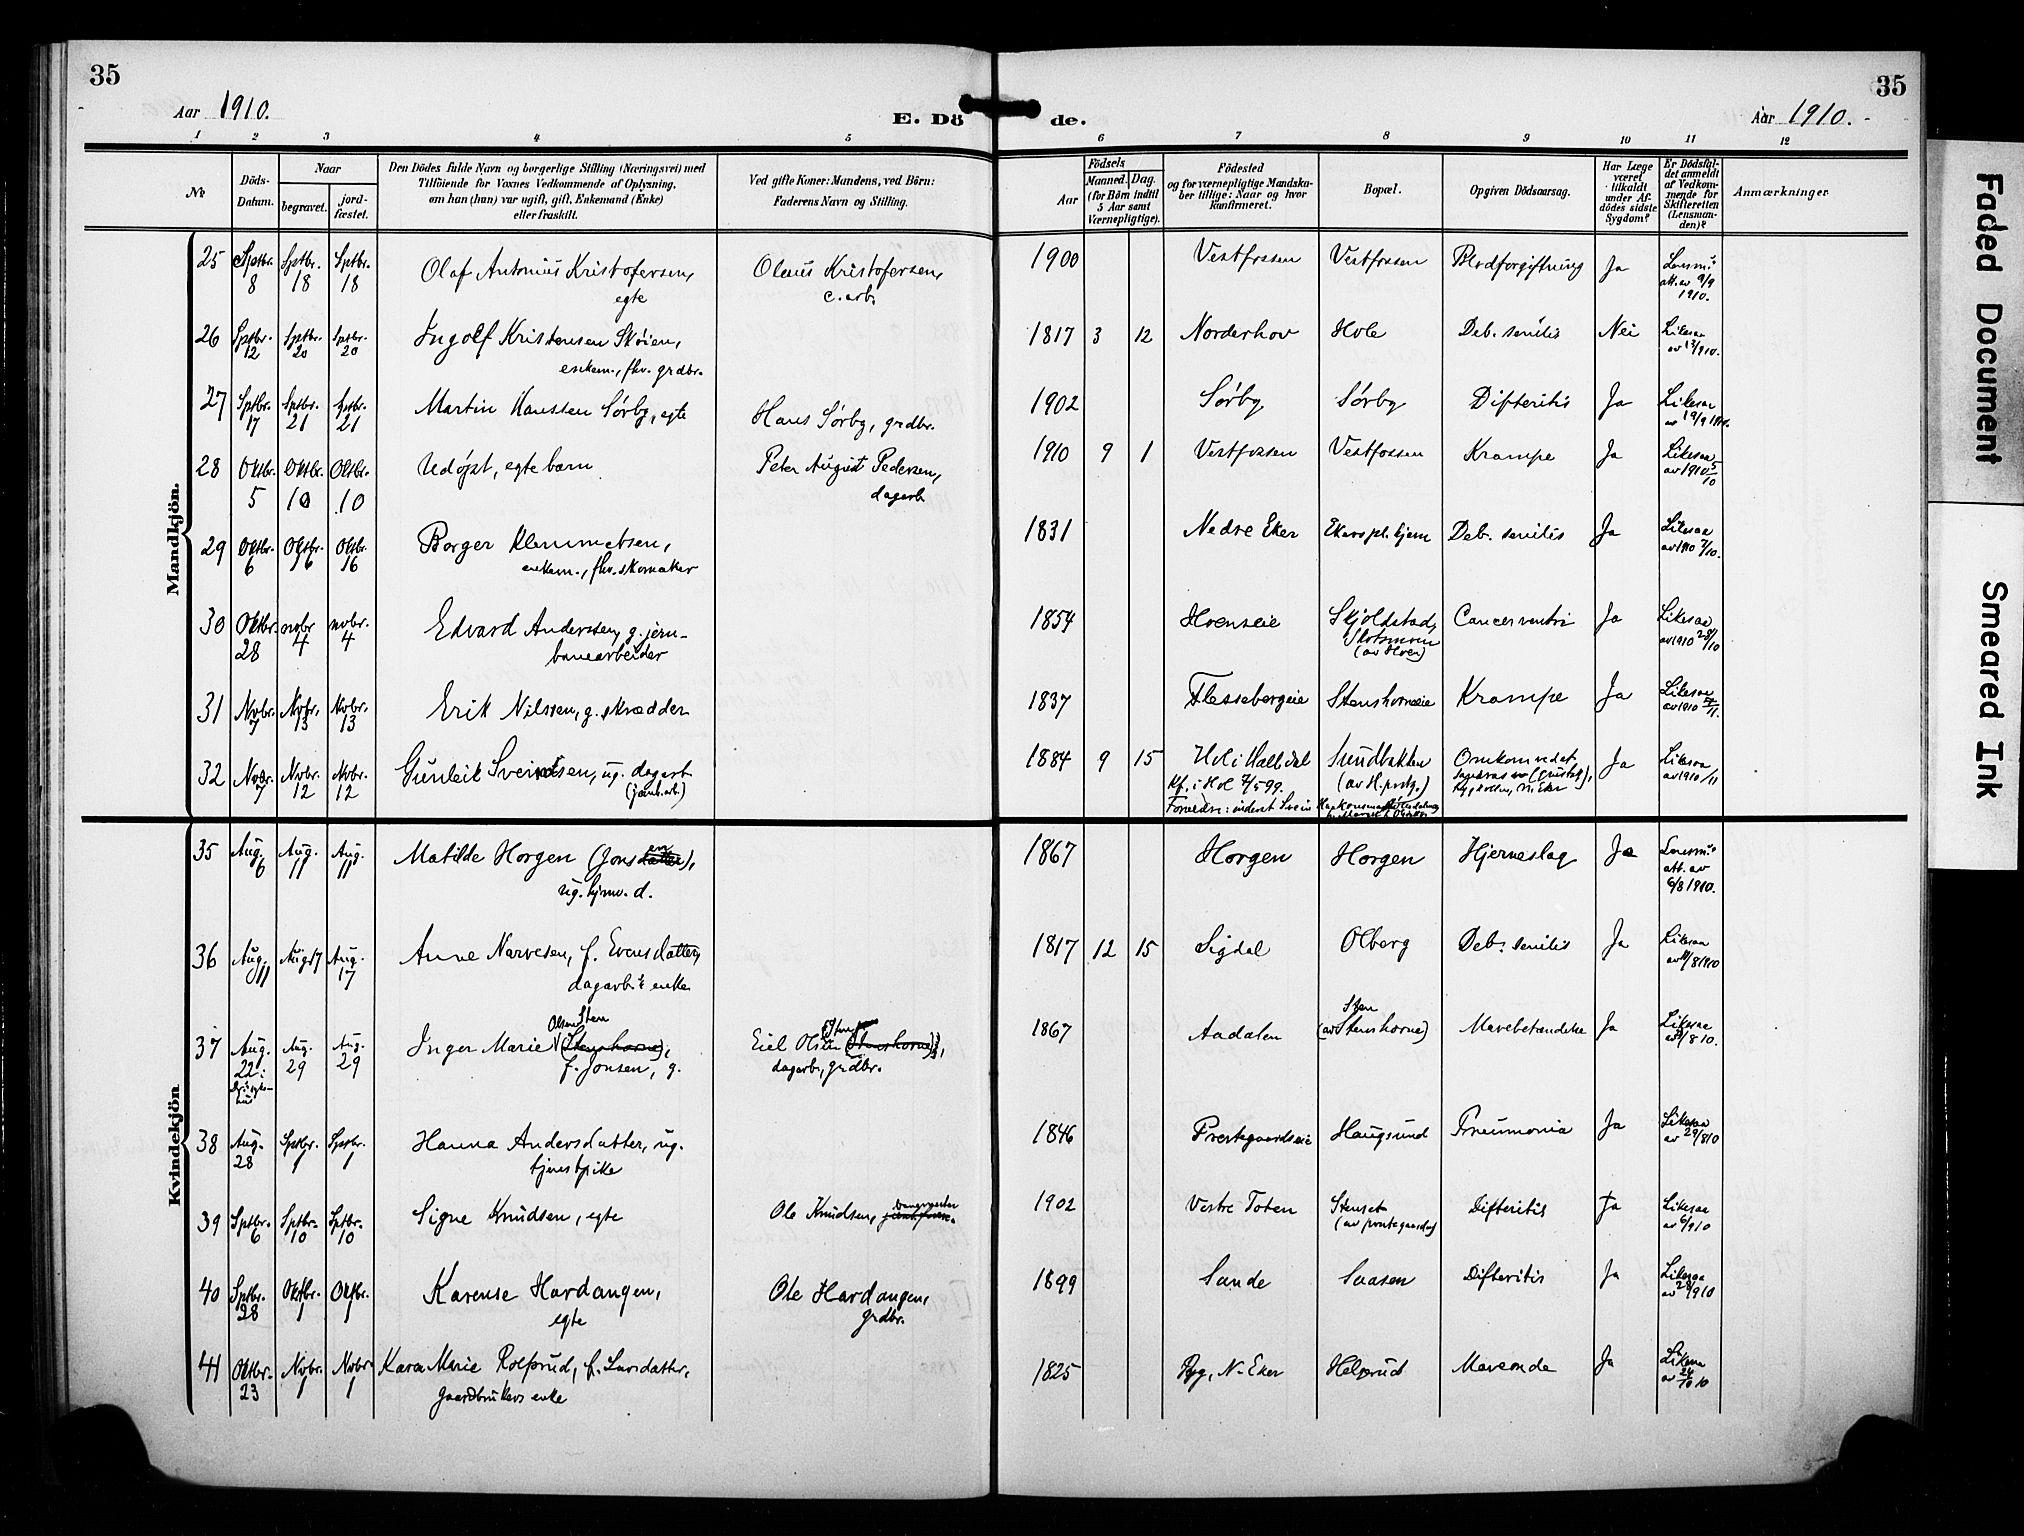 35
Aar 1910.
E. Dö
de.
Aar 1910.
35
1 2 3 4 5 6 7 8 9 10 11 12
No
Döds-
Datum.
Naar
begravet.
jord-
fæstet.
Den Dödes fulde Navn og borgerlige Stilling (Næringsvei) med
Tilföiende for Voxnes Vedkommende af Oplysning,
om han (hun) var ugift, gift, Enkemand (Enke)
eller fraskilt.
Ved gifte Koner: Mandens, ved Börn:
Faderens Navn og Stilling.
Födsels
Aar
Maaned. Dag.
(for Börn indtil
5 Aar samt
Værnepligtige).
Födested
og for værnepligtige Mandska-
ber tillige: Naar og hvor
konfirmeret.
Bopæl.
Opgiven Dödsaarsag.
Har Læge
været
tilkaldt
under Af-
dödes sidste
Sygdom?
Er Dödsfal-
det anmeldt
af Vedkom-
mende for
Skifteretten
(Lensman-
den)?
Anmærkninger
Mandkjön.
25 Sptbr. 8 Sptbr. 18 Sptbr. 18 Olaf Antonius Kristofersen, Olaus Kristofersen, 1900 Vestfossen Vestfossen Blodforgiftning Ja
egte c. arb.
att. av 9/9
1910.
26 Sptbr. 12 Sptbr. 20 Sptbr. 20 Ingolf Kristensen Skøien, 1817 3 12 Norderhov Hole Deb. senilis Nei Likesaa
enkem., fhv. grdbr.
27 Sptbr. 17 Sptbr. 21 Sptbr. 21 Martin Hanssen Sørby, egte Hans Sørby, grdbr. 1902 Sørby Sørby Difteritis Ja Likesaa
28 Oktbr. 5 Oktbr. 10 Oktbr. 10 Udøpt, egte barn Peter August Pedersen, 1910 9 1 Vestfossen Vestfossen Krampe Ja Likesaa
dagarb. av 1910 5/10
29 Oktbr. 6 Oktbr. 16 Oktbr. 16 Borger Klemmetsen, 1831 Nedre Eker Ekers pl. hjem Deb. senilis Ja Likesaa
enkem., fhv. skomaker av 1910 7/10.
30 Oktbr. 28 novbr. 4 novbr. 4 Edvard Anderssen, g. jern- 1854 Hoenseie Skjoldstad, Cancer ventri Ja Likesaa
banearbeider Slotsmoen av 1910 28/10
(av Hoen)
31 Nvbr. 7 Nvbr. 13 Nvbr. 13 Erik Nilssen, g. skrædder 1837 Flessebergeie Stenshorneie Krampe Ja Likesaa
32 Nvbr. 7 Nvbr. 12 Nvbr. 12 Gunleik Sveinsen, ug. dagarb. 1884 9 15 Hol i Hallingdal Sundbakken Omkom ved et Ja Likesaa
(jernb.arb.) Kf. i Hol 7/5 99. (av H. prstg.)
Kvindekjön
35 Aug. 6 Aug. 11 Aug. 11 Matilde Horgen (Jonsdatter en), 1867 Horgen Horgen Hjerneslag Ja
ug. hjmv. d. att. av
6/8 1910.
36 Aug. 11 Aug 17 Aug. 17 Anne Narvesen, f. Evensdatter, 1817 12 15 Sigdal Olberg Deb. senilis Ja Likesaa
dagarb.s enke av 11/8 1910
Olsen Sten
37 Aug. 22 Aug. 29 Aug. 29 Inger Marie (Stenshorne), Eiel Olsen (Stenshorne), 1867 Aadalen (av Stenshorne) Mavebetændelse Ja Likesaa
f. Jonsen, g. dagarb., grdbr.
38 Aug. 28 Sptbr. 1 Sptbr. 1 Hanna Andersdatter, ug. 1846 Prestegaardseie Haugsund Pneumonia Ja Likesaa
tjenestpike av 29/8 10
39 Sptbr. 6 Sptbr. 10 Sptbr. 10 Signe Knudsen, egte Ole Knudsen, banevogter 1902 Vestre Toten Stenset Difteritis Ja Likesaa
(av prestegaarden) av 6/9 10
40 Sptbr. 28 Oktbr. 1 Oktbr. 1 Karense Hardangen, Ole Hardangen, 1899 Sande Saasen Difteritis Ja Likesaa
egte grdbr. av 28/9 10
41 Oktbr. 23 Nvbr. 1 Nvbr. 1 Karen Marie Rolfsrud, f. Larsdatter, 1825 Byg, N. Eker Helgerud Maveonde Ja Likesaa
Gaardbrukers enke av 24/10 10
Faded Document
Smeared Ink